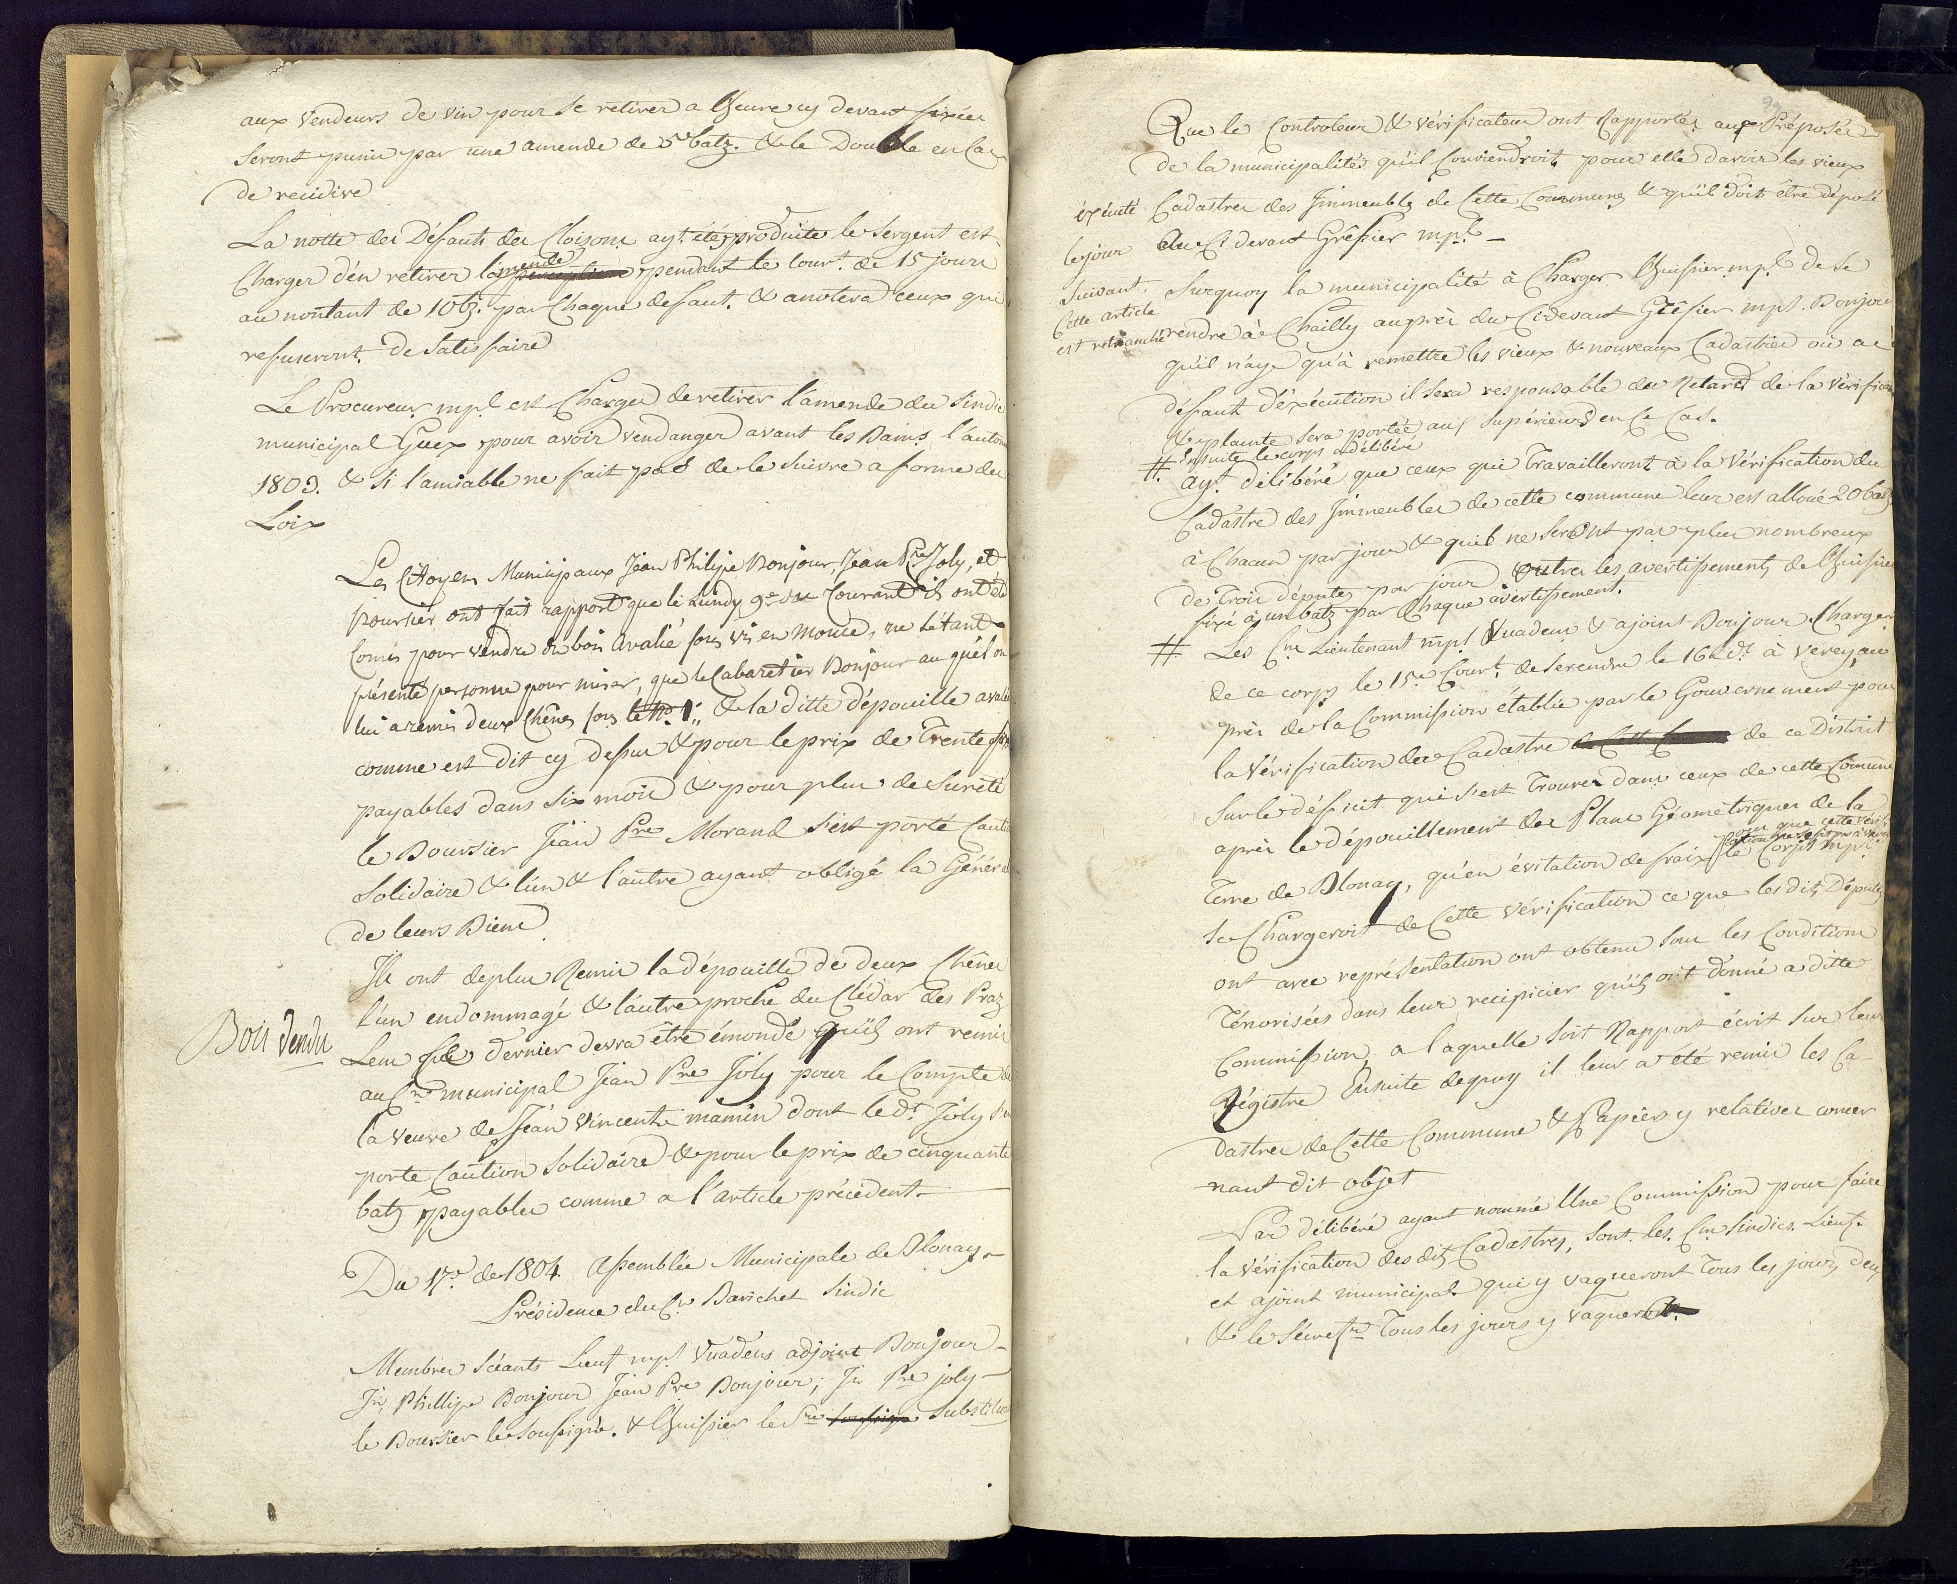 aux vendeurs de vin pour se retirer a l'heure cy devant fixée
seront punis par une amende de 5 batz. & le Double en Cas
de recidive
La notte des Défauts des Cloisons ayt. été produite le Sergent est
Charger d'en retirer l'amende pendant le Court. de 15 jours
au montant de 10 bz. par Chaque defaut. & anotera ceux qui
refuseront. de Satisfaire
Le Procureur mpl. est Charger de retirer l'amende du Sindic
municipal Guex pour avoir vendanger avant les Bams l'automne
1803. & Si l'amiable ne fait pas de le Suivre a forme des
Loix
Les Citoyens Municipaux Jean Philipe Bonjour, Jean Pre Joly, et
Boursier ont fait rapport que le Lundy 9e du Courant ils ont été
Comis pour vendre du bois avalié sous vis en Mouce, ne s'étant
présenté personne pour miser, que le Cabaretier Bonjour au quel on
lui a remis deux Chênes sous le No. 1 & la ditte dépouille avaliée
comme est dit cy dessus & pour le prix de Trente
payables dans Six mois & pour plus de Sureté
le Boursier Jean Pre Morand s'est porté Caution
Solidaire & l'un & l'autre ayant obligé la Général
de leurs Biens
Ils ont de plus Remis la dépouille de deux Chênes
l'un endommagé & l'autre proche du Clédar des Praz
Leur dernier devra être émondé qu'ils ont remis
Bois Vendu
au Cn municipal Jean Pre Joly pour le Compte de
la veuve de Jean Vincent mamin dont le dt. Joly s'en
porte Caution Solidaire & pour le prix de cinquante
batz payables comme a l'article précédent.
Du 17e de 1804. Assemblée Municipale de Blonay
Présidence du Cn Barichet Sindic
Membres Séants Lieut mpl Vuadens adjoint Bonjour
Jn Phillipe Bonjour Jean Pre Bonjour, Jn Pre joly
le Boursier le Soussigné. & l'huissier le Sre soussigné Substitué
Que le Controleur & vérificateur ont Rapportés aux Préposés
de la municipalité qu'il Conviendroit pour elle d'avoir les vieux
Cadastres des Immeubles de Cette Commune & qu'il doit être déposé
au Ci devant Grêfier mpl.
éxécuté
le jour
Suivant.
Cette article
est retranché
Surquoy la municipalité à Charger l'huissier mpl de se
rendre à Chailly auprès du Cidevant Grêfier mpl. Bonjour
qu'il n'aye qu'à remettre les vieux & nouveaux Cadastres ou a
défaut d'éxécution il sera responsable du Retard de la vérification
& plainte sera portée aux Supérieurs en Ce Cas.
Ensuite le corps a délibéré
#. ayt. délibéré que ceux qui Travailleront à la Vérification du
Cadastre des Immeubles de cette commune leur est alloué 20 batz
à Chacun par jour & qu'il ne seront pas plus nombreux
de Trois députés par jour, outre les avertissements de l'huissier
fixé à un batz par Chaque avertissement.
# Les Cns Lieutenant mpl Vuadens & ajoint Bonjour Charger
de ce corps le 15e Court. de se rendre le 16e dt. à Vevey, au
près de la Commission établie par le Gouvernement pour
la Vérification des Cadastre de ce District
Sur le déficit qui s'est Trouver dans ceux de cette Comune
après le dépouillement des Plans Géométriques de la
Terre de Blonay, qu'en évitation de fraix pour que cette vérifi-
cation ne se fit pas à Vevey le Corps mpl
se Chargeroit de Cette vérification ce que les dits Députés
ont avec représentation ont obtenu sous les Conditions
Ténorisées dans leur recipicier qu'ils ont donné a ditte
Commission, a laquelle soit Rapport écrit Sur leur
Régistre Ensuite dequoy il leur a été remis les Ca-
dastres de Cette Commune & Papiers y relatives concer
nant dit objet
Par délibéré ayant nommé Une Commission pour faire
la vérification des dits Cadastres, sont les Cns Sindics. Lieut.
et ajoint municipal qui y vaqueront Tous les jours, deux
& le Sécretre Tous les jours y vaquer